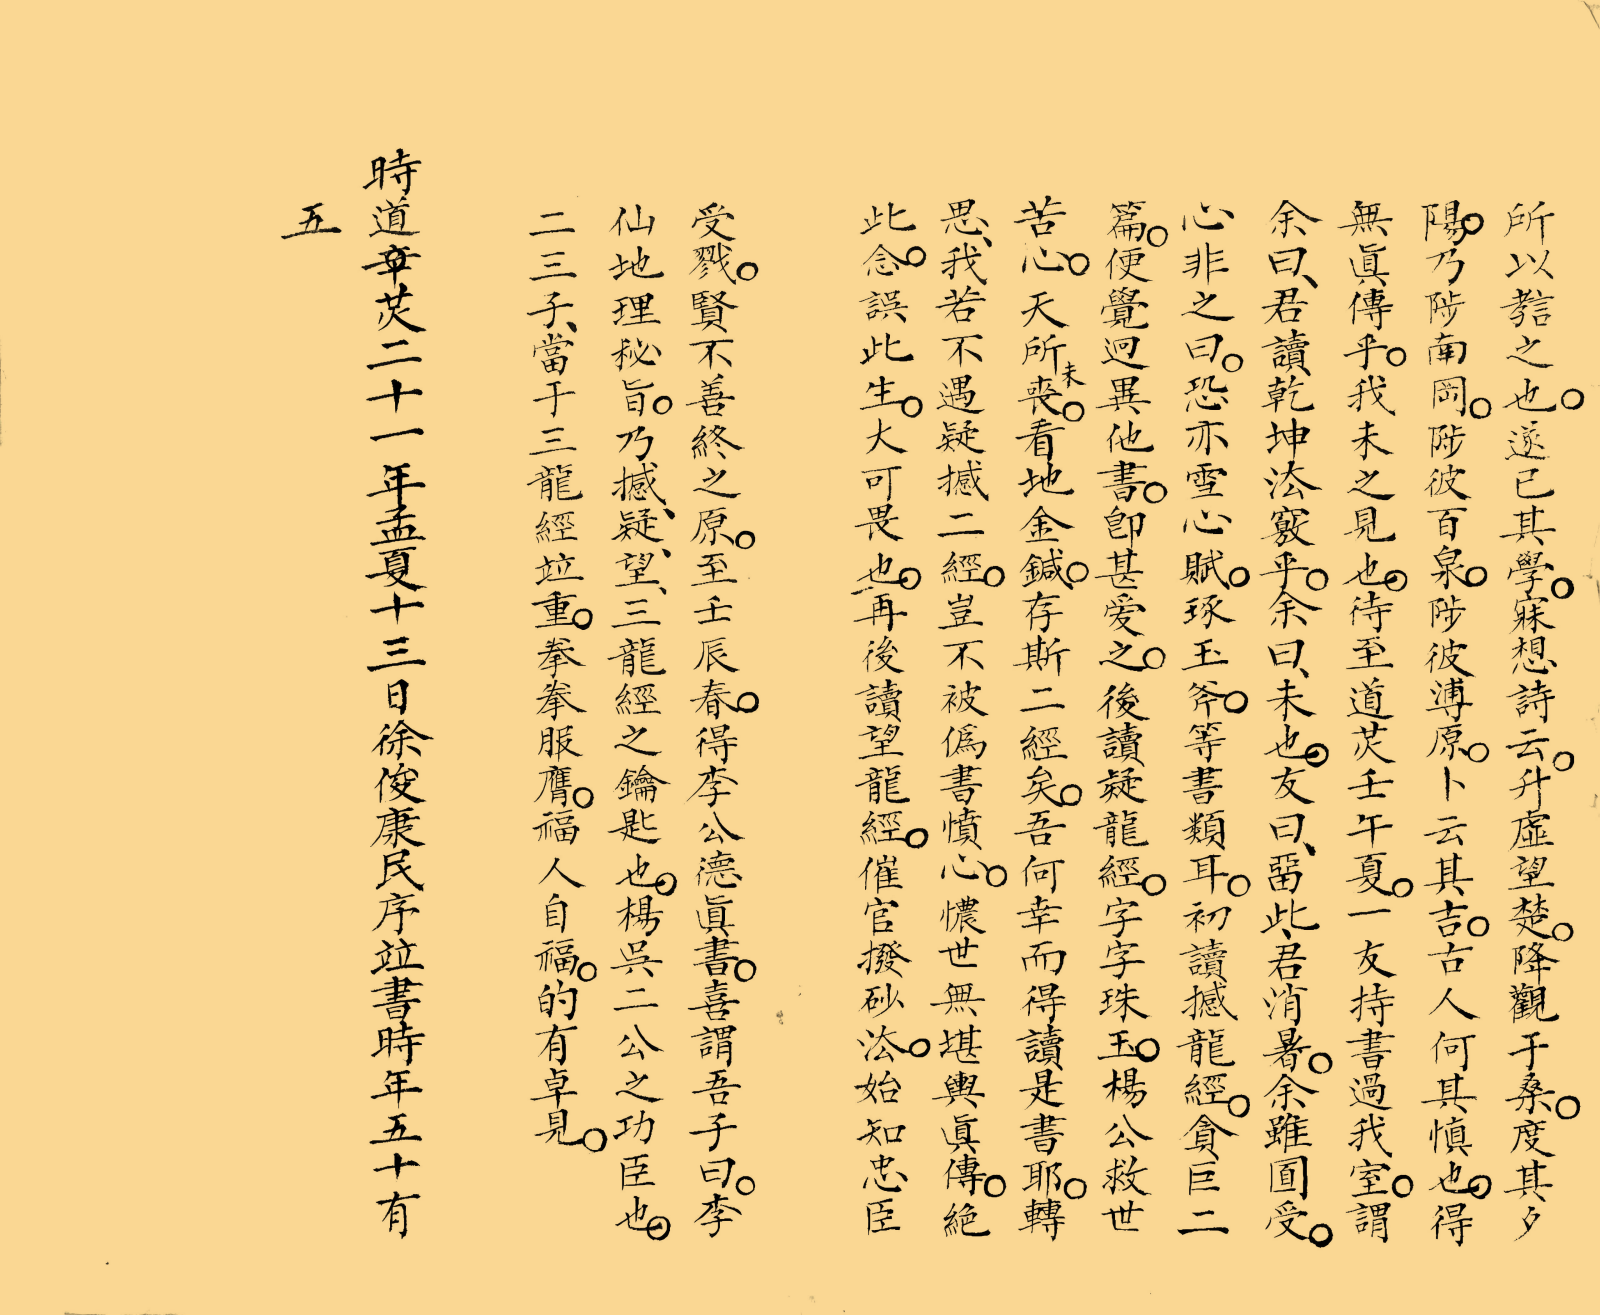 所以嚞之也。遂已其學。寐想詩云。升虛望楚。降觀于桑。度其夕
陽。乃陟南岡。陟彼百泉。陟彼溥原。卜云其吉。古人何其慎也。得
無眞傳乎。我未之見也。待至道光壬午夏。一友持書過我室。謂
余曰、君讀乾坤法竅乎。余曰、未也。友曰、畱此、君消暑。余雖圓受。
心非之曰。恐亦雪心賦。琢玉斧。等書類耳。初讀撼龍經。貪巨二
篇。便覺迥異他書。卽甚愛之。後讀疑龍經。字字珠玉。楊公救世
苦心。天所未喪。看地金鍼。存斯二經矣。吾何幸而得讀是書耶。轉
思、我若不遇疑撼二經。豈不被僞書憤心。懷世無堪輿眞傳。絶
此念。誤此生。大可畏也。再後讀望龍經。催官撥砂法。始知忠臣
受戮。賢不善終之原。至壬辰春。得李公德眞書。喜謂吾子曰。李
仙地理秘旨。乃撼、疑、望、三龍經之鑰匙也。楊吳二公之功臣也。
二三子、當于三龍經竝重。拳拳服膺。福人自福。的有卓見。
時道章炗二十一年孟夏十三日徐俊康民序竝書時年五十有
五